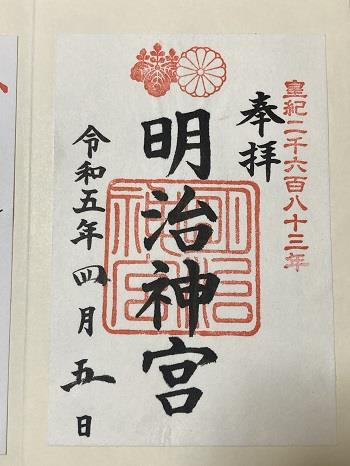 皇紀二千六百八十三年
奉拝
明治神宮
令和五年四月五日
明治神宮